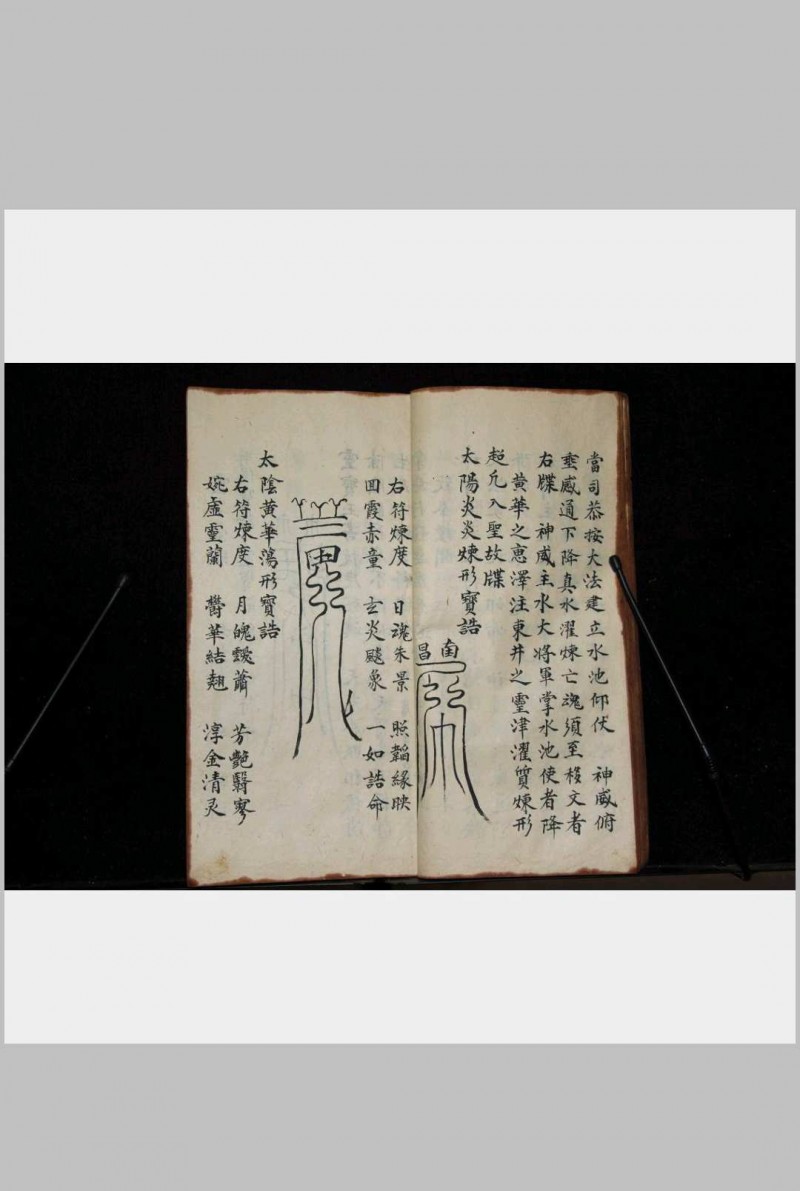 當司恭按大法建立水池仰伏　神威俯
垂感通下降真水濯煉亡魂須至移文者
右牒　神威主水大將軍掌水池使者降
黃華之惠澤注東井之靈津濯質煉形
超凡入聖故牒
太陽炎炎煉形寶誥
南昌
右符煉度　日魂朱景　照韜緑映
回霞赤童　玄炎颷象　一如誥命
太陰黃華蕩形寶誥
右符煉度　月魄蕭　芳艷翳寥
婉虛靈蘭　欝華結翹　淳金清灵